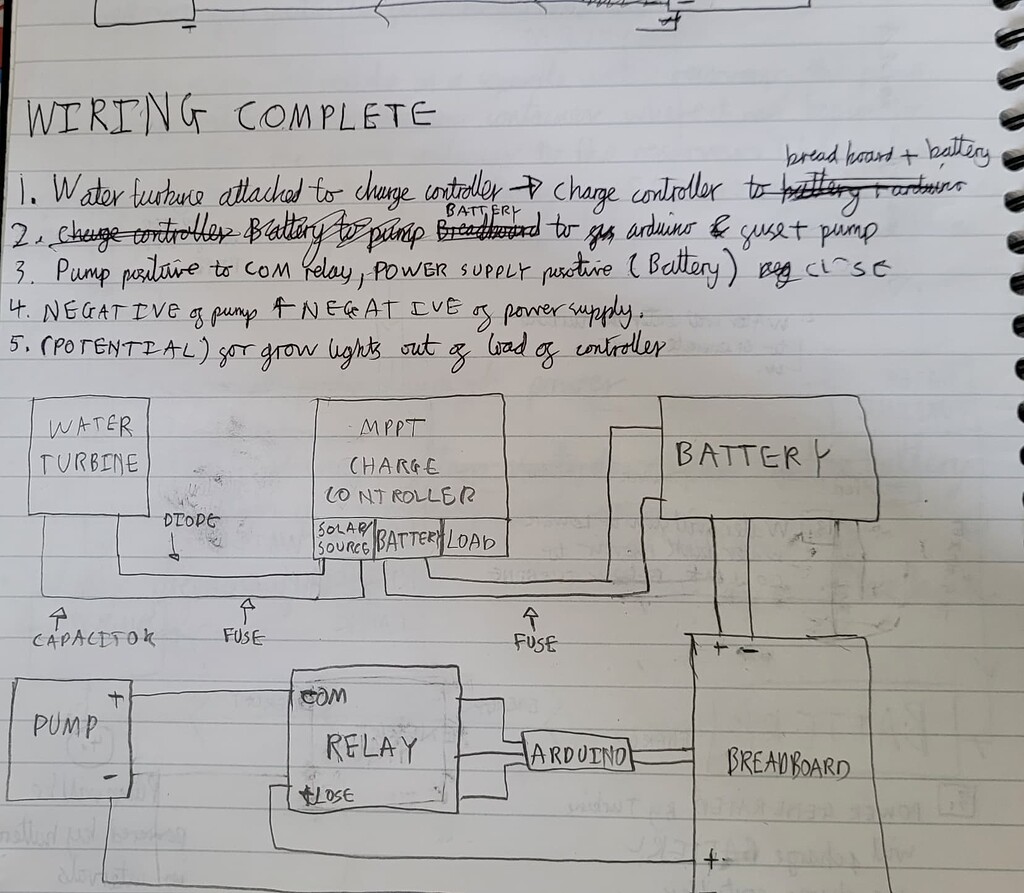 WIRING COMPLETE
bread board + battery
1. Water turbine attached to charge controller → charge controller to battery + arduino
2. Charge controller Battery to pump Breadboard to arduino & fuse + pump
BATTERY
3. Pump positive to COM relay, POWER SUPPLY positive (Battery)
4. NEGATIVE of pump + NEGATIVE of power supply.
5. (POTENTIAL) for grow lights out of load of controller
WATER
TURBINE
MPPT
CHARGE
CONTROLLER
SOLAR/
SOURCE
BATTERY
LOAD
BATTERY
DIODE
CAPACITOR
FUSE
FUSE
+ -
PUMP
+
-
COM
RELAY
CLOSE
ARDUINO
BREADBOARD
+